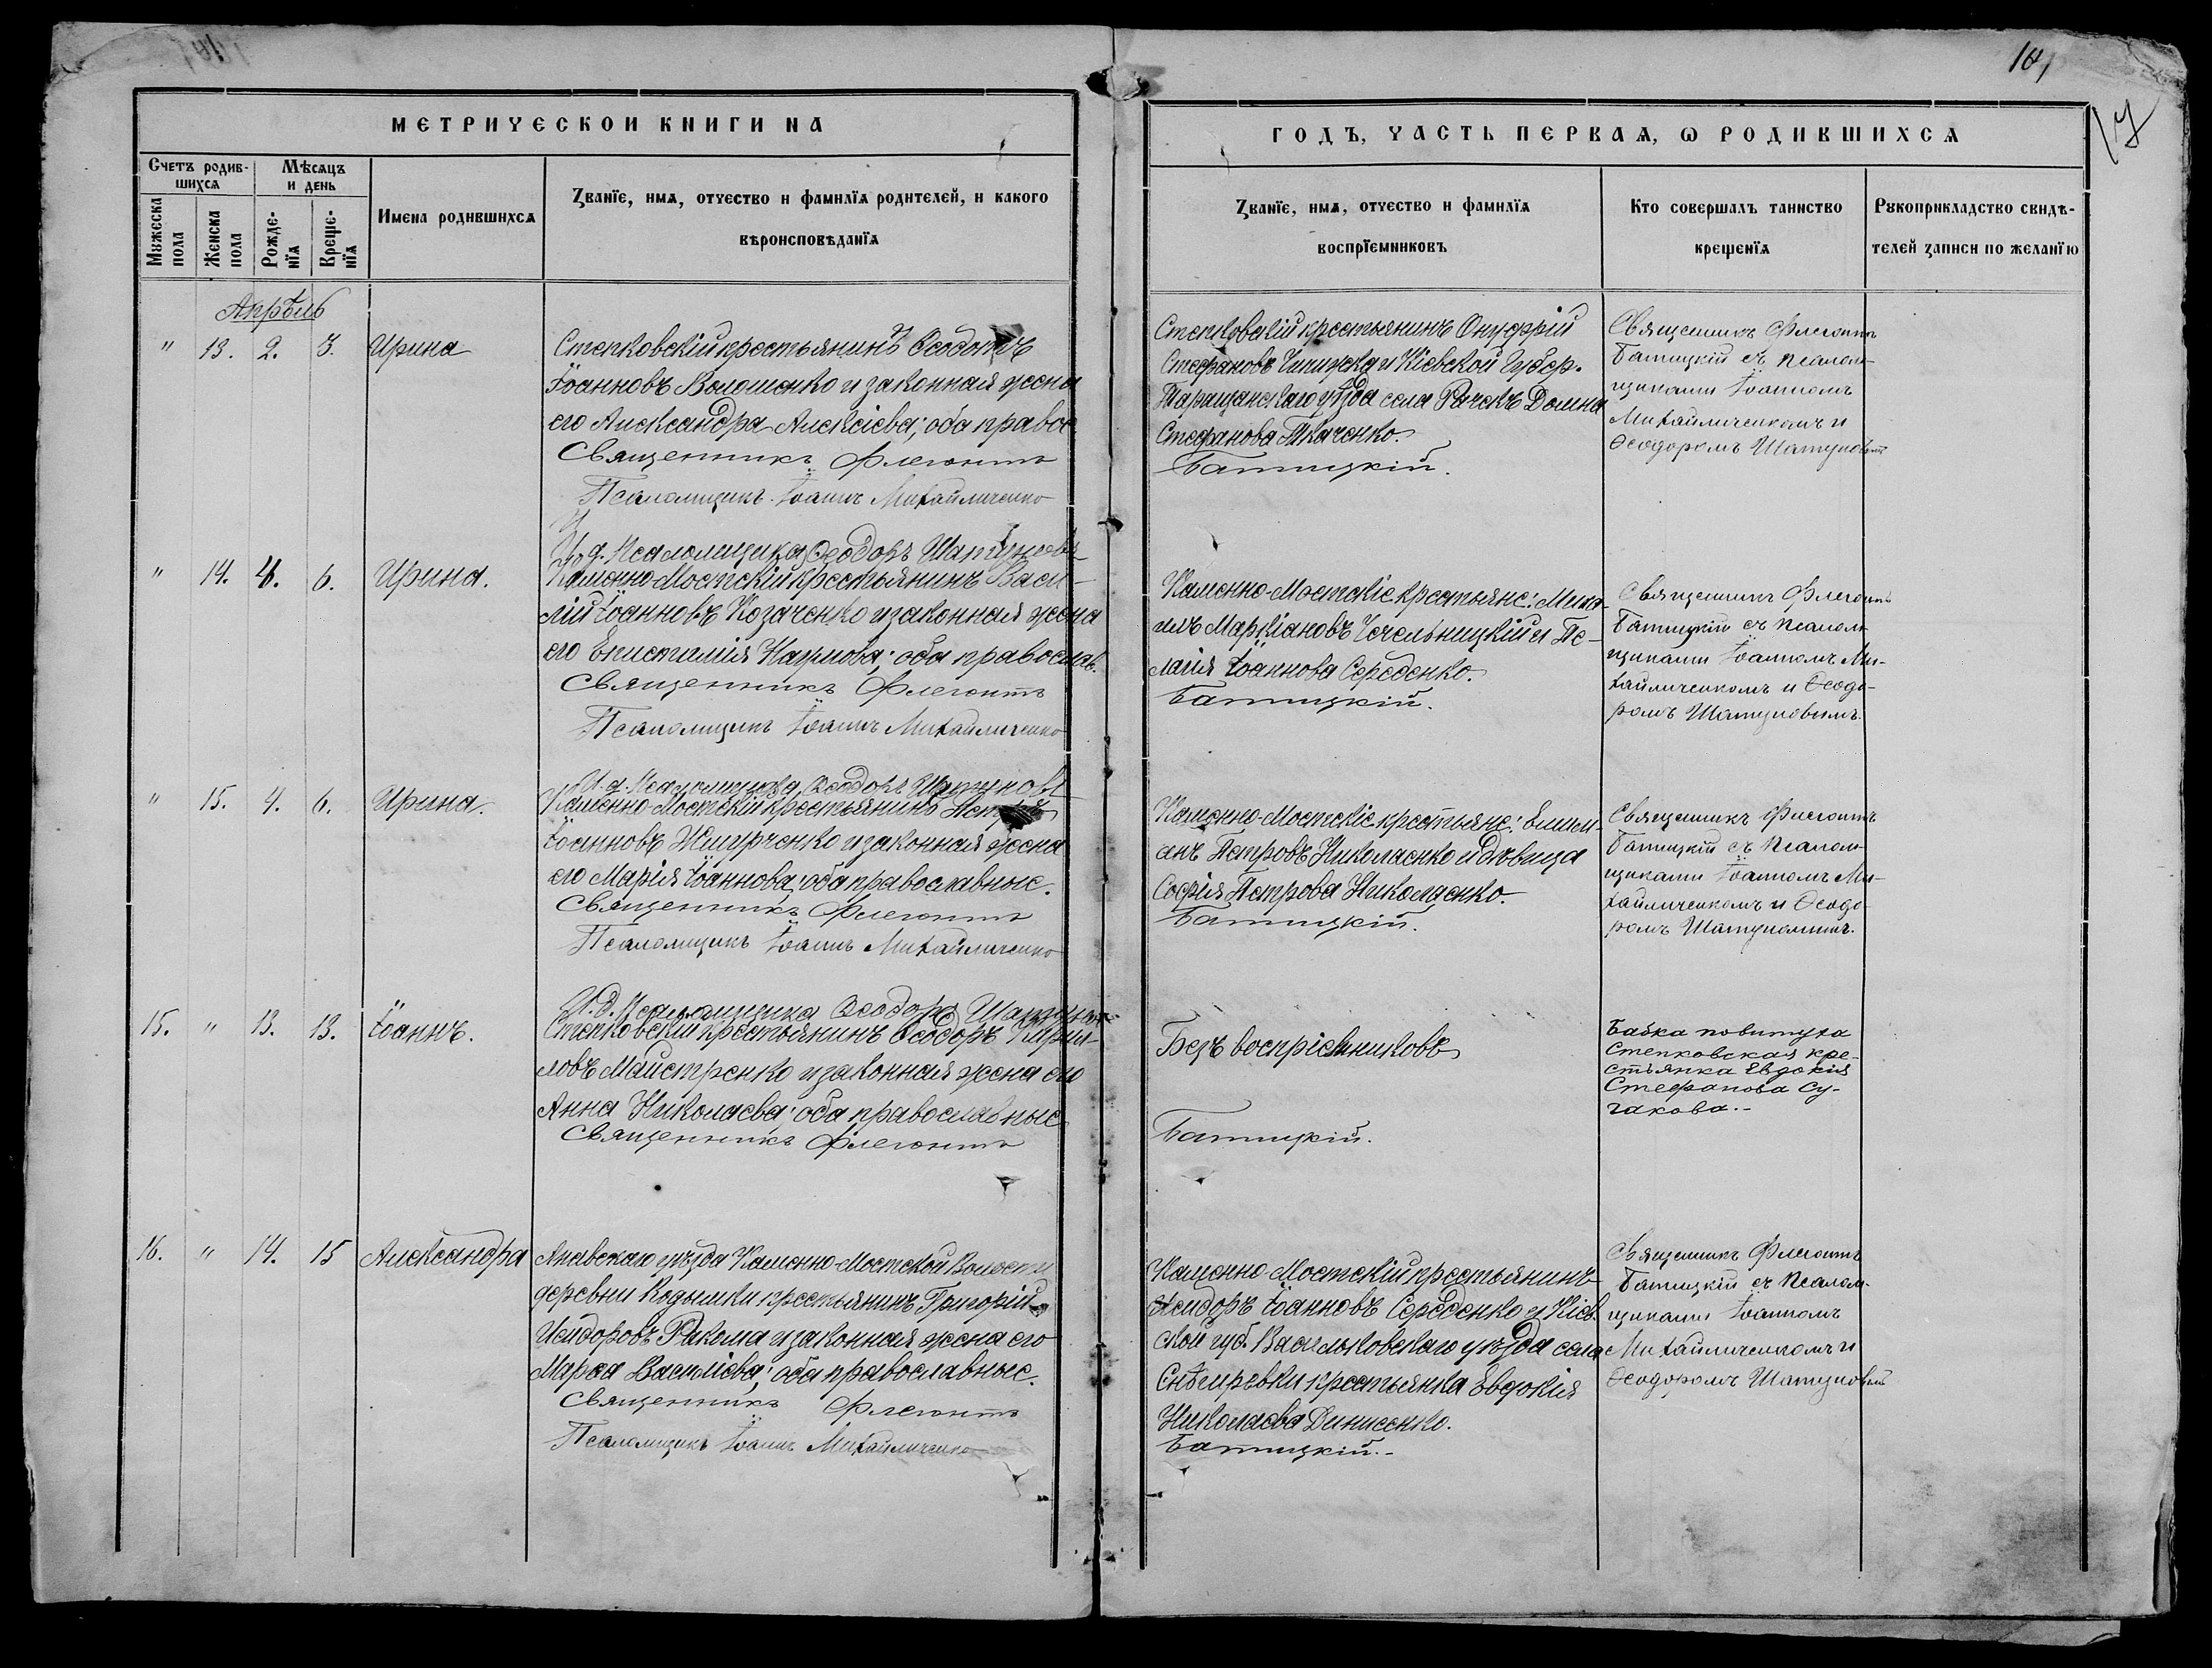 184
17
МЕТРИЧЕСКОЙ КНИГИ НА
ГОДЪ, ЧАСТЬ ПЕРВАЯ, Ѡ РОДИВШИХСѦ
Счетъ родив-
шихсѧ
Мѣсѧцъ
и день
Имена родившихсѧ
Званїе, имѧ, отчество и фамилїѧ родителей, и какого
вѣроисповѣданїѧ
Мꙋжеска
пола
Женска
пола
Рожде-
нїѧ
Креще-
нїѧ
Званїе, имѧ, отчество и фамилїѧ
воспрїемниковъ
Кто совершалъ таинство
крещенїѧ
Рꙋкоприкладство свидѣ-
телей записи по желанїю
Апрѣль
" 13. 2. 3. Ирина
Степковскій крестьянинъ Ѳеодотъ
Іоанновъ Волошенко и законная жена
его Александра Алексіева; оба правос
Священникъ Флегонтъ
Псаломщикъ Іоаннъ Михайличенко
И. д. Псаломщика Ѳеодоръ Шатуновъ
Степковскій крестьянинъ Онуфрій
Стефановъ Чипижка и Кіевской Губер.
Таращанскаго уѣзда села Ричекъ Домна
Стефанова Ткаченко.
Батицкій.
Священникъ Флегонтъ
Батицкій съ псалом-
щиками Іоанномъ
Михайличенкомъ и
Ѳеодоромъ Шатуновымъ
" 14. 4. 6. Ирина.
Каменно-Мостскій крестьянинъ Васи-
лій Іоанновъ Козаченко и законная жена
его Епистимія Наумова; оба православ.
Священникъ Флегонтъ
Псаломщикъ Іоаннъ Михайличенко
И. д. Псаломщика Ѳеодоръ Шатуновъ
Каменно-Мостскіе крестьяне: Миха-
илъ Маркіановъ Чечельницкій и Пе-
лагія Іоаннова Середенко.
Батицкій.
Священникъ Флегонтъ
Батицкій съ псалом-
щиками Іоанномъ Ми-
хайличенкомъ и Ѳеодо-
ромъ Шатуновымъ.
" 15. 4. 6. Ирина.
Каменно-Мостскій крестьянинъ Петръ
Іоанновъ Жмурченко и законная жена
его Марія Іоаннова; оба православные.
Священникъ Флегонтъ
Псаломщикъ Іоаннъ Михайличенко
И. д. Псаломщика Ѳеодоръ Шатуновъ
Каменно-Мостскіе крестьяне: Емили-
анъ Петровъ Николаенко и дѣвица
Софія Петрова Николаенко.
Батицкій.
Священникъ Флегонтъ
Батицкій съ псалом-
щиками Іоанномъ Ми-
хайличенкомъ и Ѳеодо-
ромъ Шатуновымъ.
15. " 13. 13. Іоаннъ.
Степковскій крестьянинъ Ѳеодоръ Кирил-
ловъ Майстренко и законная жена его
Анна Николаева; оба православные
Священникъ Флегонтъ
Безъ воспріемниковъ
Батицкій.
Бабка повитуха
Степковская кре-
стьянка Евдокія
Стефанова Су-
гакова.-
16. " 14. 15 Александра
Ананьевскаго уѣзда Каменно-Мостской Волости
деревни Кодымки крестьянинъ Григорій
Исидоровъ Рикома и законная жена его
Марѳа Василіева; оба православные.
Священникъ Флегонтъ
Псаломщикъ Іоаннъ Михайличенко
Каменно-Мостскій крестьянинъ
Исидоръ Іоанновъ Середенко и Кіев.
ской губ. Васильковскаго уѣзда села
Снѣгиревки крестьянка Евдокія
Николаева Динисенко.
Батицкій.-
Священникъ Флегонтъ
Батицкій съ псалом-
щиками Іоанномъ
Михайличенкомъ и
Ѳеодоромъ Шатуновымъ